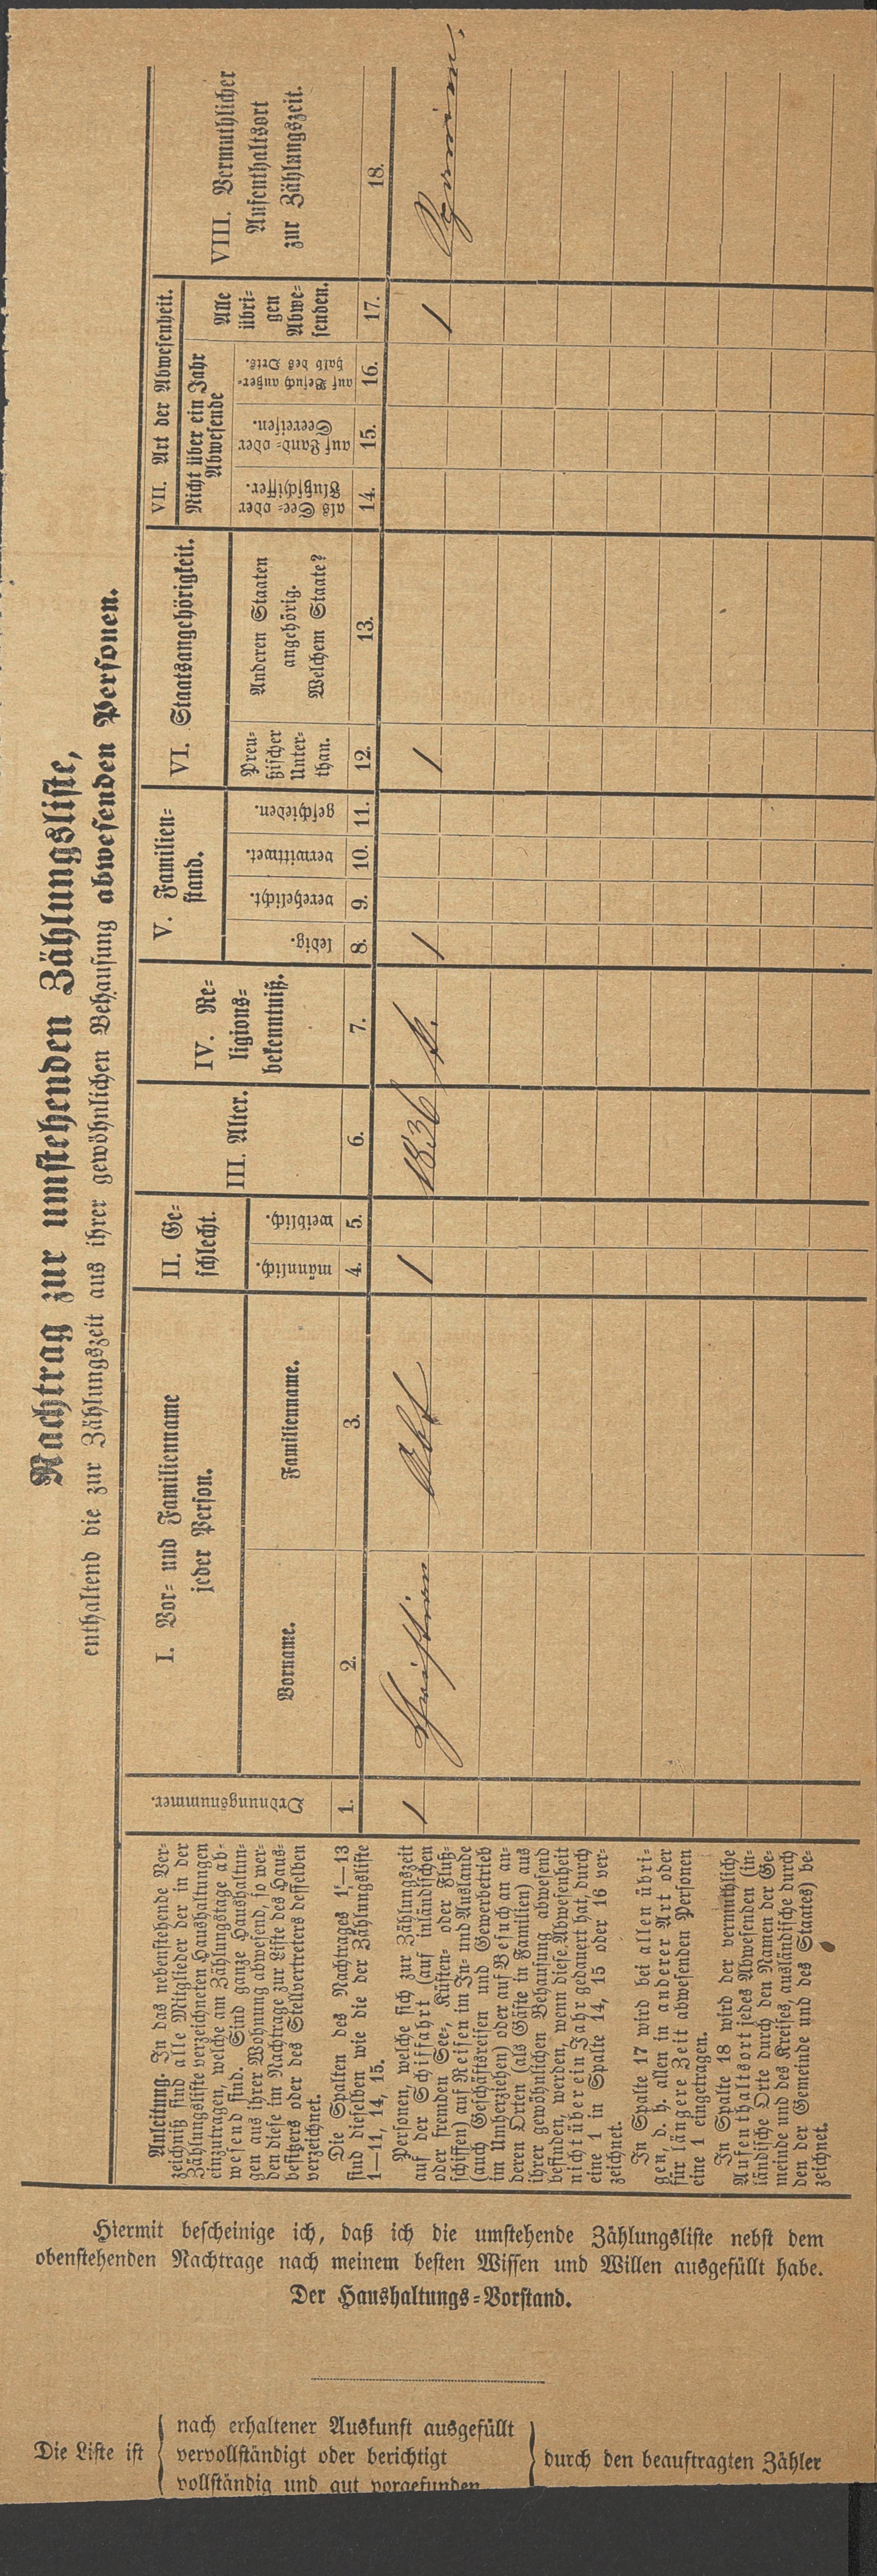 Nachtrag zur umstehenden Zählungsliste,
enthaltend die zur Zählungszeit aus ihrer gewöhnlichen Behausung abwesenden Personen.
Anleitung. In das nebenstehende Ver-
zeichniß sind alle Mitglieder der in der
Zählungsliste verzeichneten Haushaltungen
einzutragen, welche am Zählungstage ab-
wesend sind. Sind ganze Haushaltun-
gen aus ihrer Wohnung abwesend, so wer-
den diese im Nachtrage zur Liste des Haus-
besitzers oder des Stellvertreters desselben
verzeichnet.
Die Spalten des Nachtrages 1—13
sind dieselben wie die der Zählungsliste
1—11, 14, 15.
Personen, welche sich zur Zählungszeit
auf der Schiffahrt (auf inländischen
oder fremden See-, Küsten- oder Fluß-
schiffen) auf Reisen im In- und Auslande
(auch Geschäftsreisen und Gewerbetrieb
im Umherziehen) oder auf Besuch an an-
deren Orten (als Gäste in Familien) aus
ihrer gewöhnlichen Behausung abwesend
befinden, werden, wenn diese Abwesenheit
nicht über ein Jahr gedauert hat, durch
eine 1 in Spalte 14, 15 oder 16 ver-
zeichnet.
In Spalte 17 wird bei allen übri-
gen, d. h. allen in anderer Art oder
für längere Zeit abwesenden Personen
eine 1 eingetragen.
In Spalte 18 wird der vermuthliche
Aufenthaltsort jedes Abwesenden (in-
ländische Orte durch den Namen der Ge-
meinde und des Kreises, ausländische durch
den der Gemeinde und des Staates) be-
zeichnet.
Ordnungsnummer.
1.
I. Vor- und Familienname
jeder Person.
Vorname.
2.
Familienname.
3.
II. Ge-
schlecht.
männlich.
4.
weiblich.
5.
III. Alter.
6.
IV. Re-
ligions-
bekenntniß.
7.
V. Familien-
stand.
ledig.
8.
verehelicht.
9.
verwittwet.
10.
geschieden.
11.
VI. Staatsangehörigkeit.
Preu-
ßischer
Unter-
than.
12.
Anderen Staaten
angehörig.
Welchem Staate?
13.
VII. Art der Abwesenheit.
Nicht über ein Jahr
Abwesende
als See- oder
Flußschiffer.
14.
auf Land- oder
Seereisen.
15.
auf Besuch außer-
halb des Orts.
16.
Alle
übri-
gen
Abwe-
senden.
17.
VIII. Vermuthlicher
Aufenthaltsort
zur Zählungszeit.
18.
1 Christian Abt 1 1836 k. 1 1 1
Hiermit bescheinige ich, daß ich die umstehende Zählungsliste nebst dem
obenstehenden Nachtrage nach meinem besten Wissen und Willen ausgefüllt habe.
Der Haushaltungs-Vorstand.
Die Liste ist
nach erhaltener Auskunft ausgefüllt
vervollständigt oder berichtigt
vollständig und gut vorgefunden
durch den beauftragten Zähler